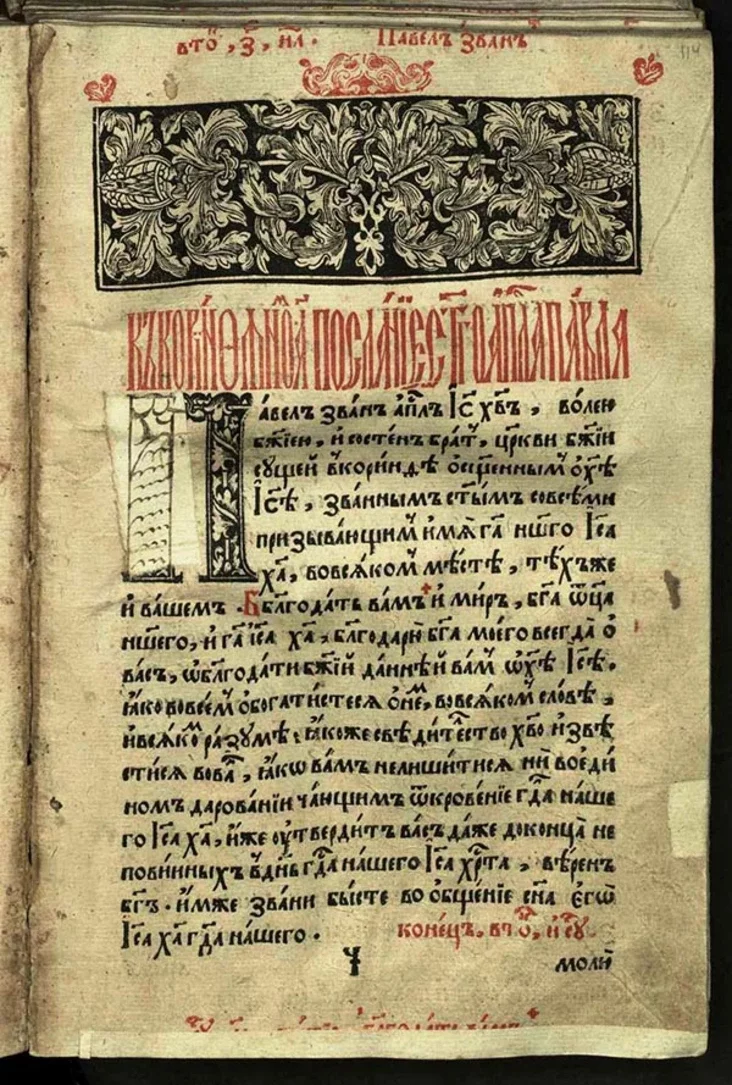 вто҃ , з҃ , нл҃ . Павелъ зва́нъ
114
Къ кори́нѳѧномъ посла́нїе ст҃го ап҃ла па́вла
Па́велъ зва́нъ ап҃лъ І҃с хв҃ъ , во́лею
бж҃їею , и сосѳе́нъ бра́тъ , цр҃кви бж҃їи
су́щей в̾кори́нѳѣ ѡсщ҃еннымъ ѡ хр҃тѣ
І҃сѣ , зва́ннымъ ст҃ы́мъ совсѣ́ми
призыва́ющими и́мѧ га҃ нш҃го І҃са
ха҃ , вовсѧ́комъ мѣ́стѣ , тѣ́хъже
и ва́шемъ . Б бл҃года́ть ва́мъ и ми́ръ , бг҃а ѿц҃а
нш҃его , и га҃ і҃са ха҃ , бл҃годарю̀ бг҃а моего̀ всегда̀ о
ва́съ , ѡ бл҃года́ти бж҃їй да́ннѣй ва́мъ ѡ хр҃тѣ І҃сѣ .
ꙗ́ко вовсе́мъ обогати́стесѧ о не́мъ , вовсѧ́комъ сло́вѣ ,
и всѧ́комъ ра́зумѣ . ꙗ́коже свѣдѝтелство хв҃о извѣ
сти́сѧ вова́съ , ꙗ́кѡ ва́мъ нелиши́тисѧ ни воеди́
номъ дарова́нїи ча́ющимъ ѿкрове́нїе гд҃а на́ше
го І҃са ха҃ , и́же ѹ҆тверди́тъ ва́съ да́же доконца̀ не
пови́нныхъ в̾ де́нь гд҃а на́шего І҃са хр҃та , вѣ́ренъ
бг҃ъ . и́мже зва́ни бы́сте во общ́енїе сн҃а его̀
І҃са ха҃ гд҃а на́шего . коне́цъ , вто҃ , и су҃
моли̾